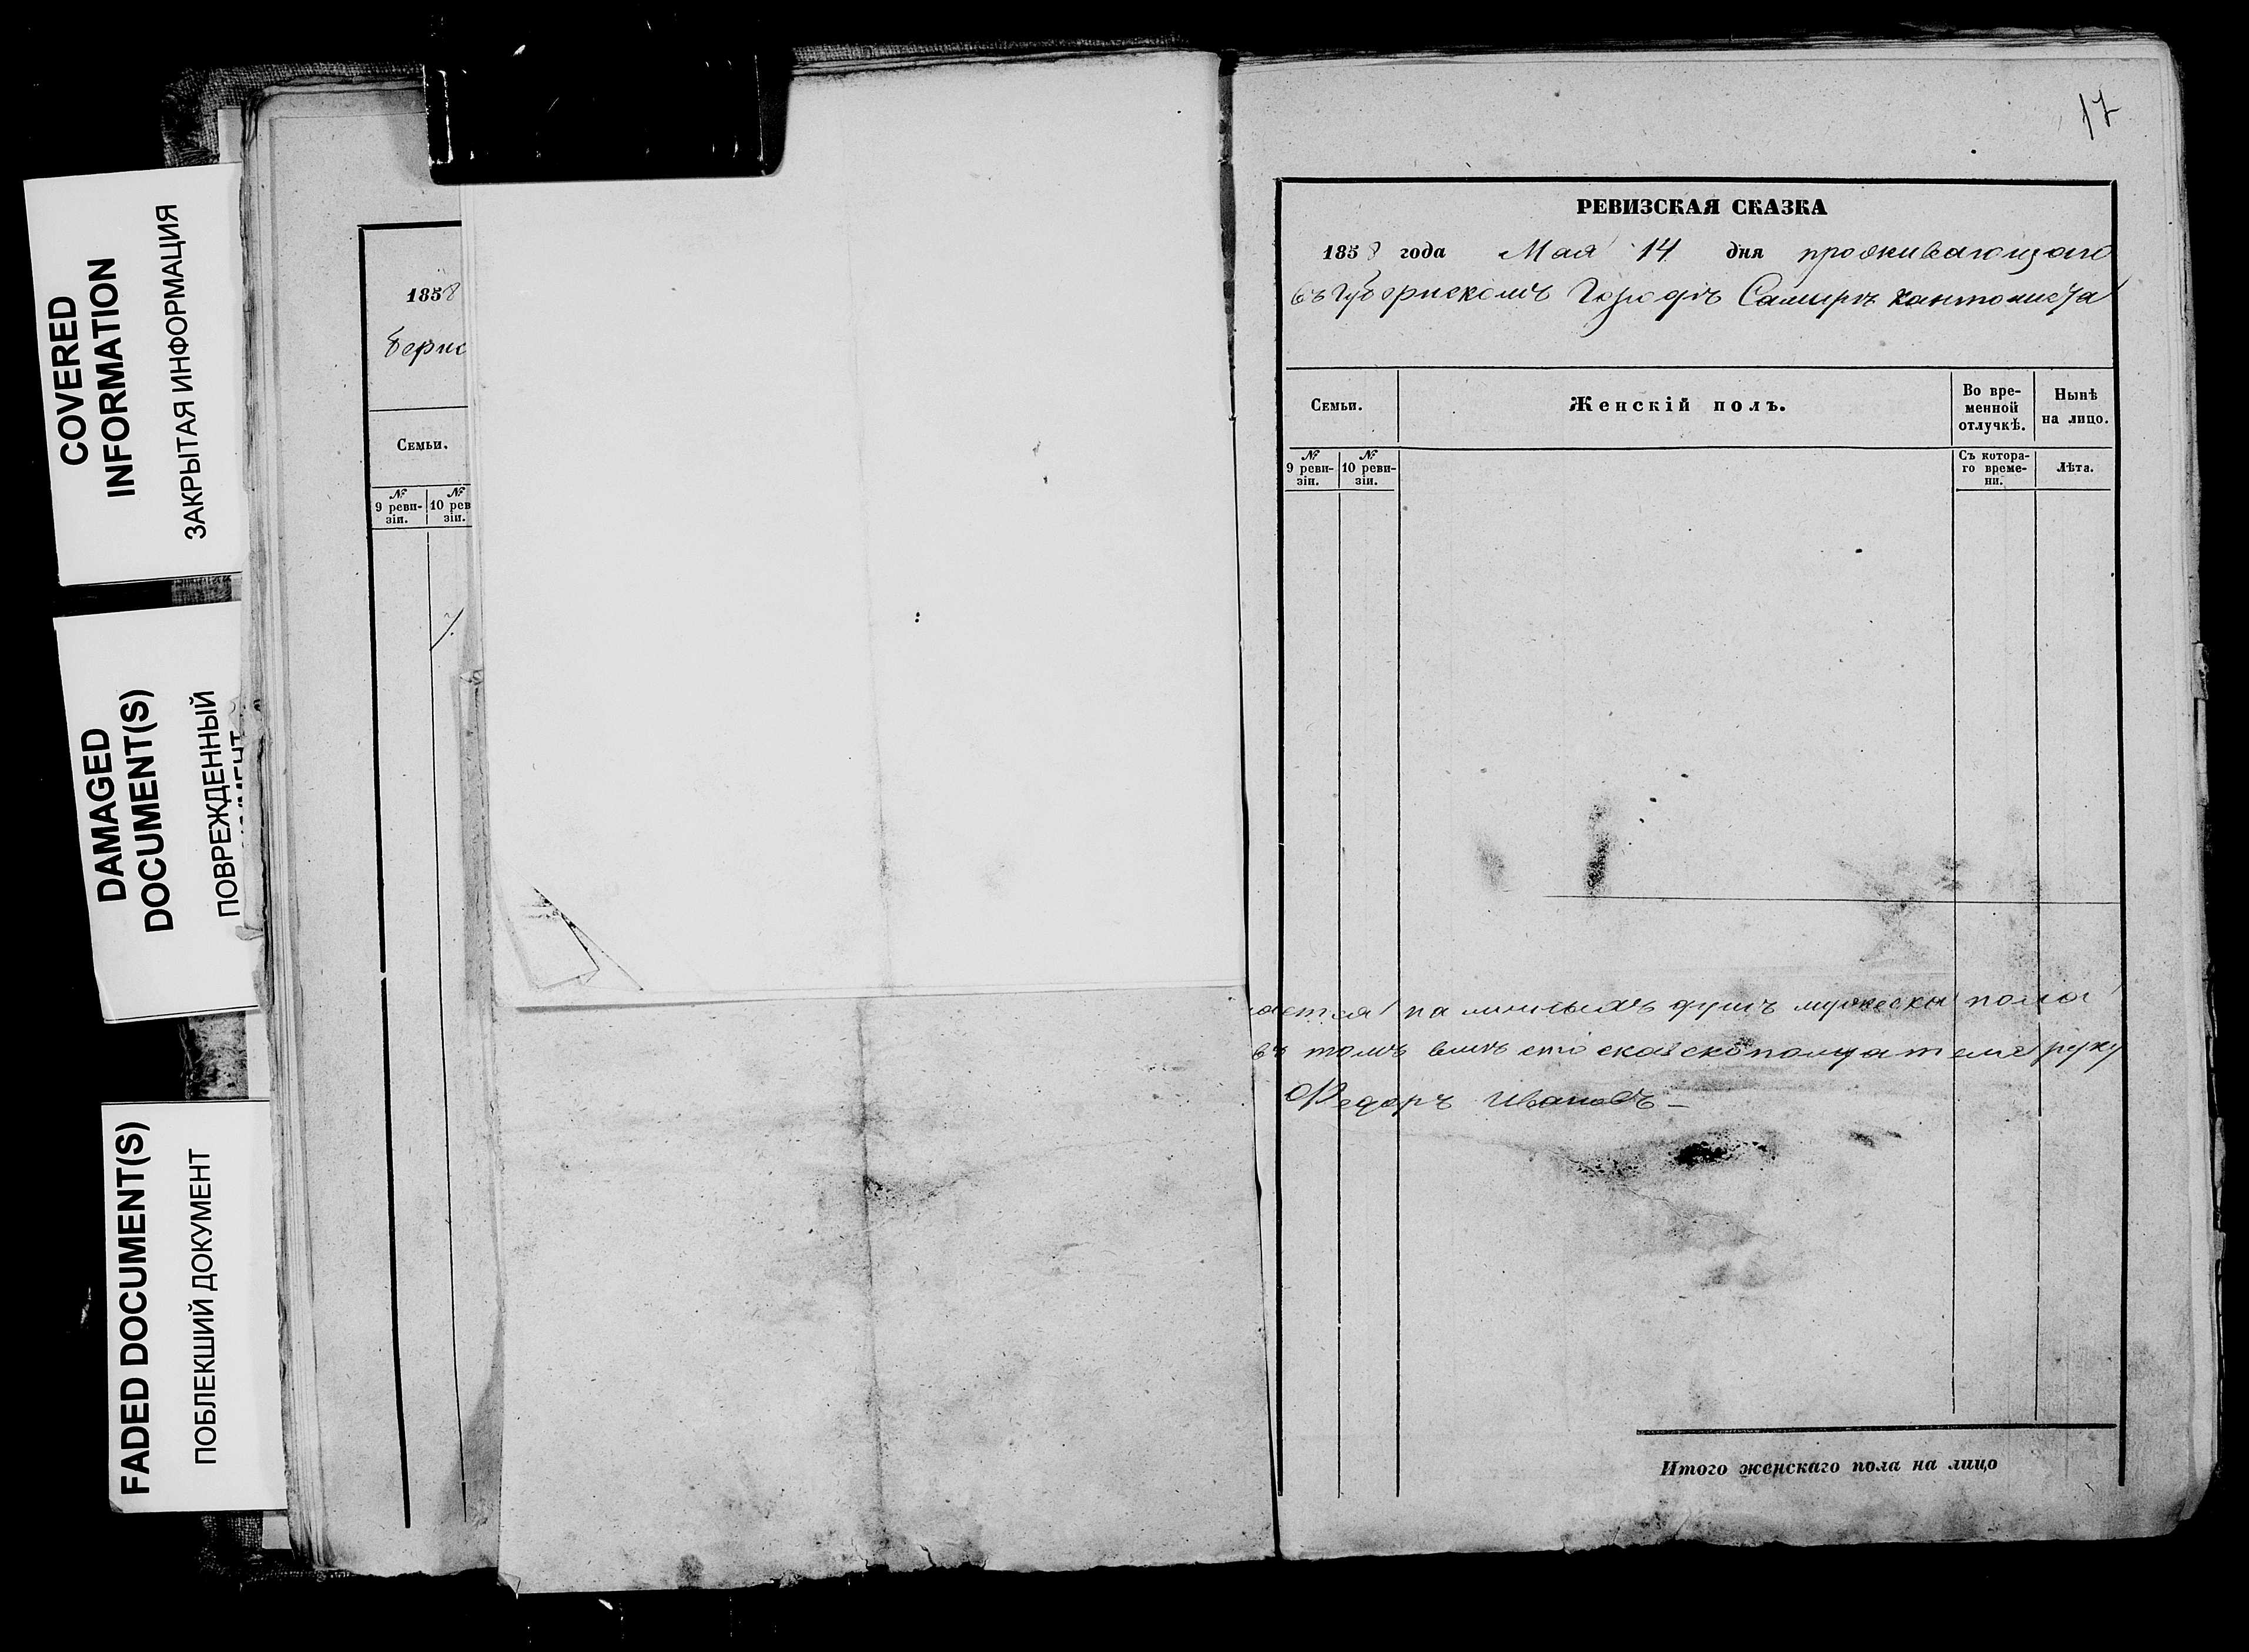 COVERED
INFORMATION
ЗАКРЫТАЯ ИНФОРМАЦИЯ
DAMAGED
DOCUMENT(S)
ПОВРЕЖДЕННЫЙ
FADED DOCUMENT(S)
ПОБЛЕКШИЙ ДОКУМЕНТ
1858
берnс
Семьи.
№ 9 реви-зіи.
№ 10 рев зіи.
17
РЕВИЗСКАЯ СКАЗКА
1858 года Мая 14 дня проживающаго
въ Губернскомъ Городѣ Самарѣ кантониста
Семьи.
Женскій полъ.
Во вре-
менной
отлучкѣ.
Нынѣ
на лицо.
№
9 реви-
зіи.
№
10 реви-
зіи.
Съ котора-
го време-
ни.
Лѣта.
душъ мужеска пола
въ томъ руку
Федоръ Ивановъ
Итого женскаго пола на лицо